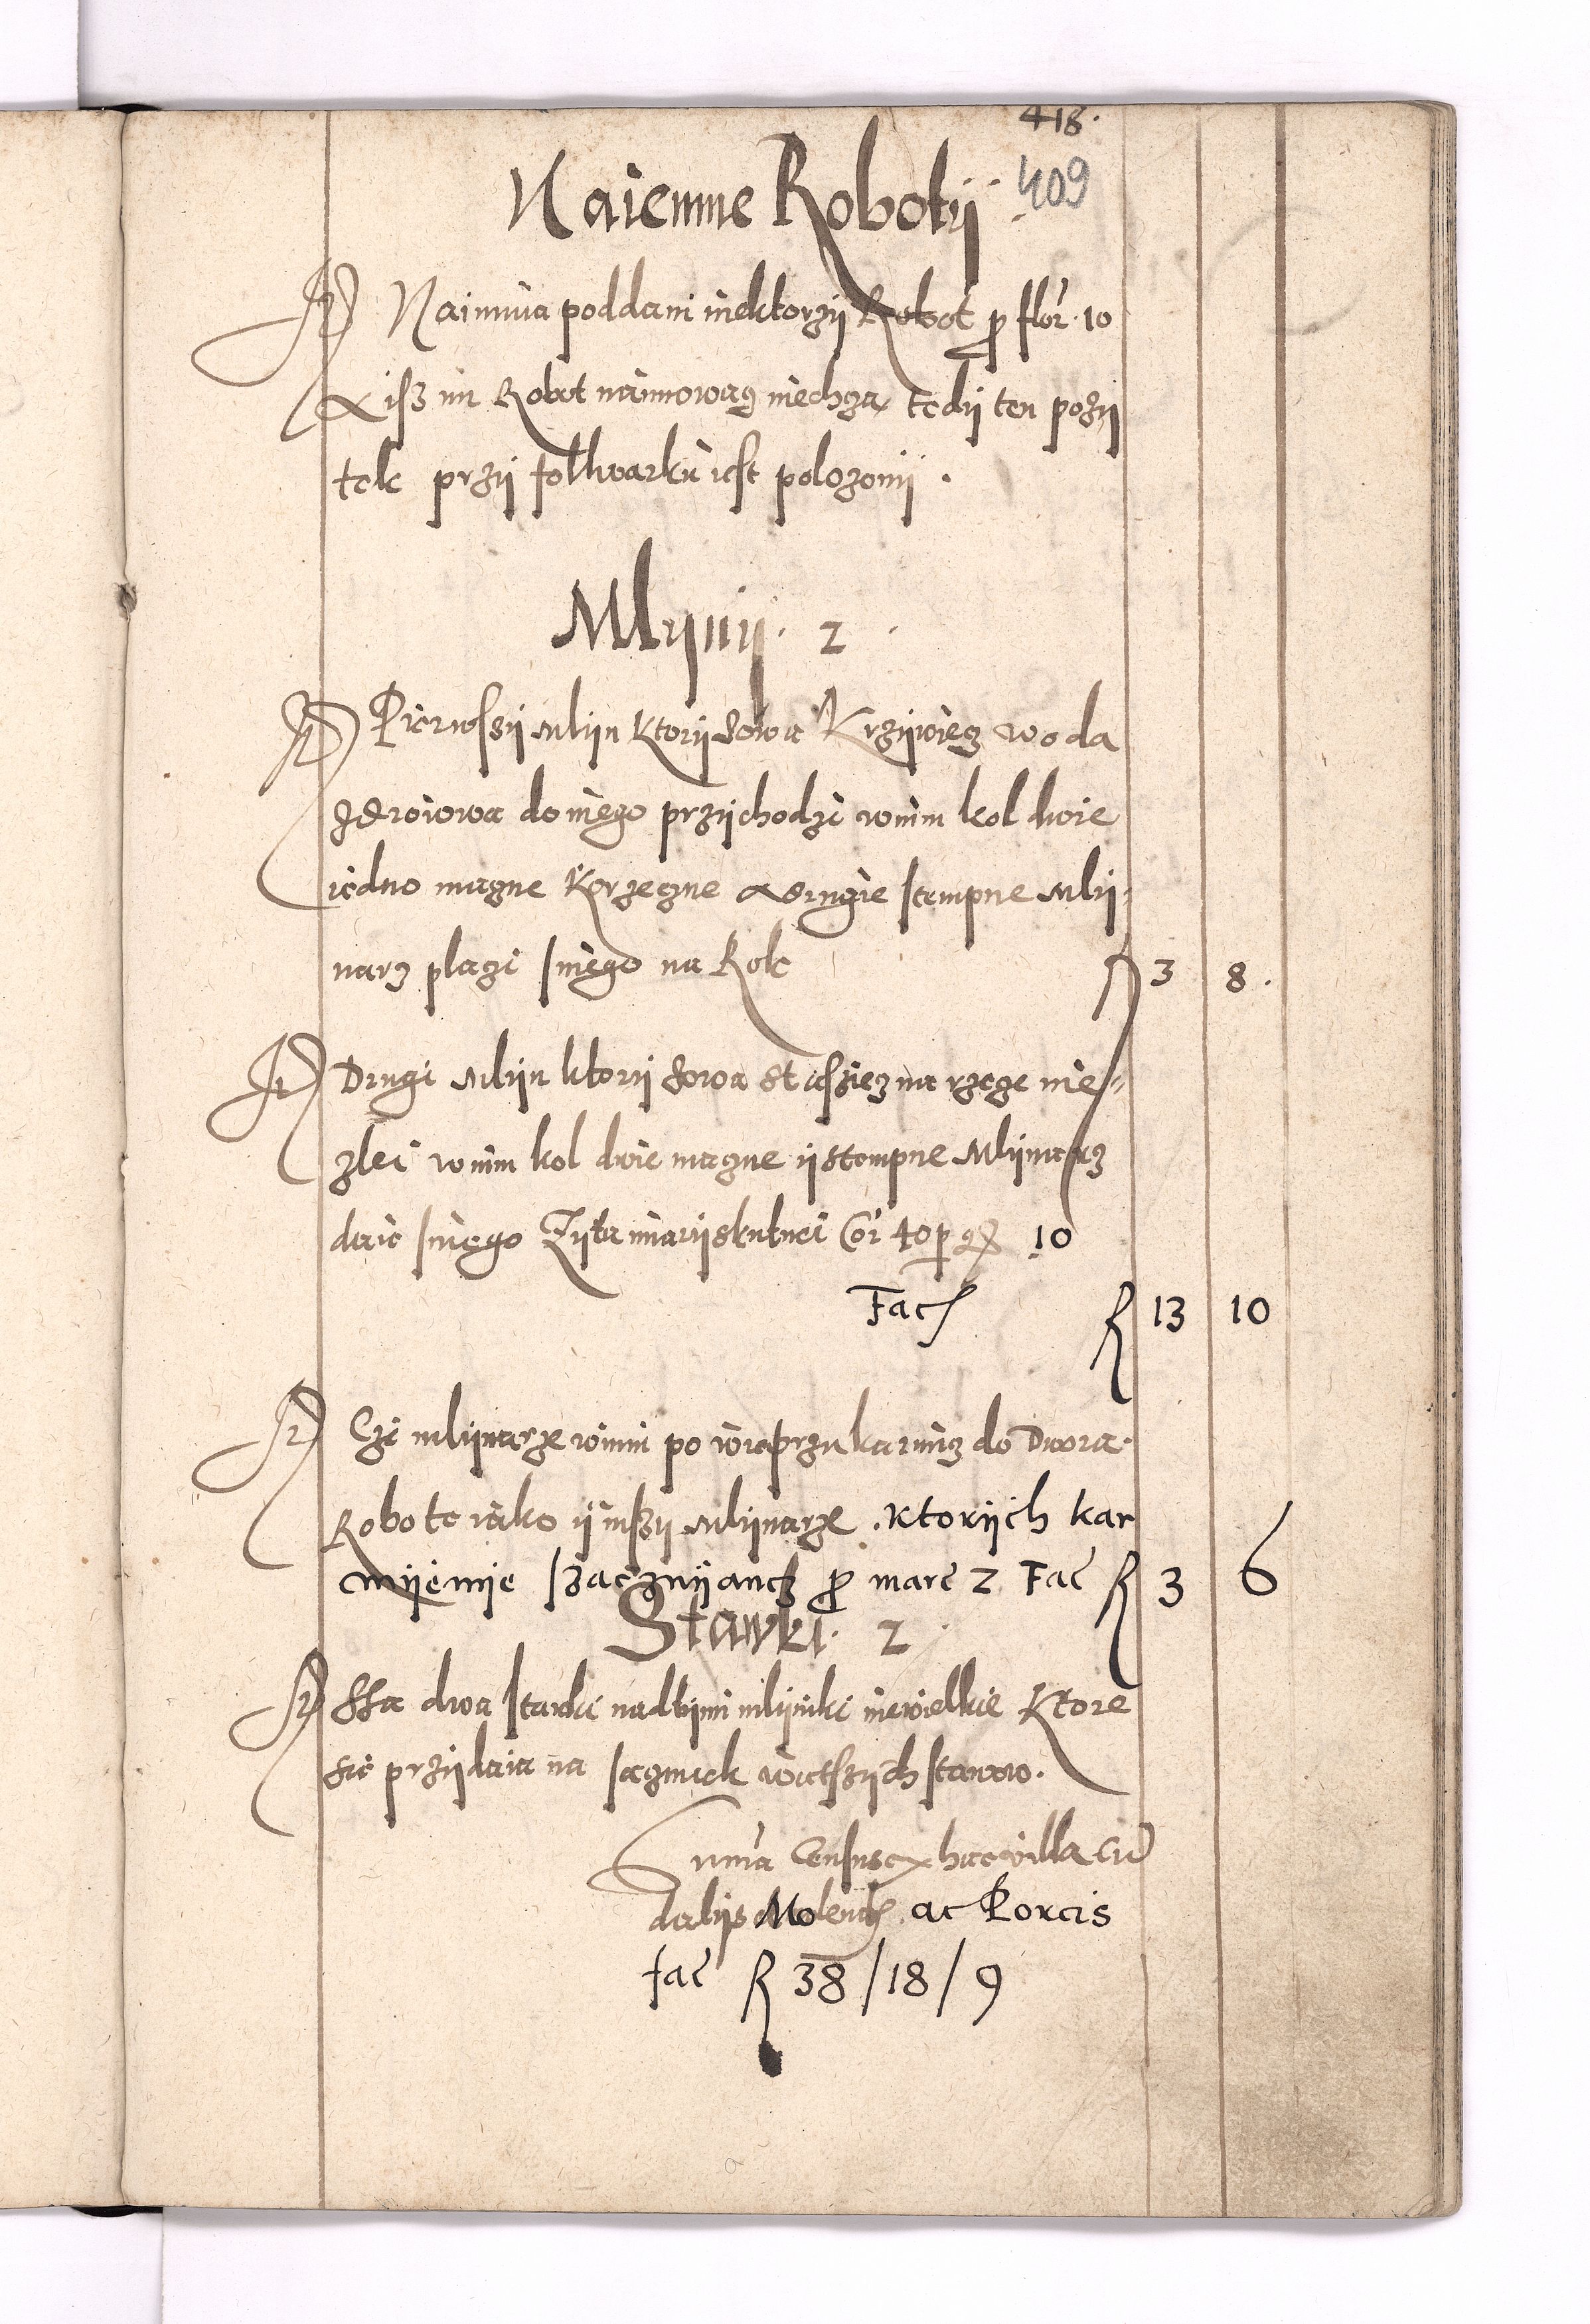 418.
409
Naiemne Robotÿ
It Naimuia poddani niektorzÿ Robot p flor 10
A isz im Robot naimowacz niechcza tedÿ ten pozÿ
tek przÿ folwarku iest polozonÿ.
Mlÿnÿ. 2.
It Pierwssÿ mlÿn ktorÿ zowa Krzÿwiecz woda
zdroiowa do niego przÿchodzi w nim kol dwie
iedno maczne Korzeczne a drugie stempne mlÿ-
narz placzi s niego na Rok R 3 8.
It Drugi mlÿn ktorÿ zowa Stassiecz na rzecze nie-
zlei w nim kol dwie maczne ÿ stempne Mlÿnarz
daie s niego Zÿta miarÿ skutnei Cor 40 p gr 10
Fac R 13 10
It Czi mlÿnarze winni po wieprzu karmicz do Dwora.
Robote iako ÿ inszÿ mlÿnarze. ktorÿch kar
mÿemÿe szacznÿancz p marc 2 Fac R 3 6
Stawki. 2
It Ssa dwa stawki nad timi mlÿniki niewielkie Ktore
sie przÿdaia na sacznick wietszÿch stawow.
Suma Census ex hac villa cu
daliis Molend. ac Porcis
fac R 38 / 18 / 9